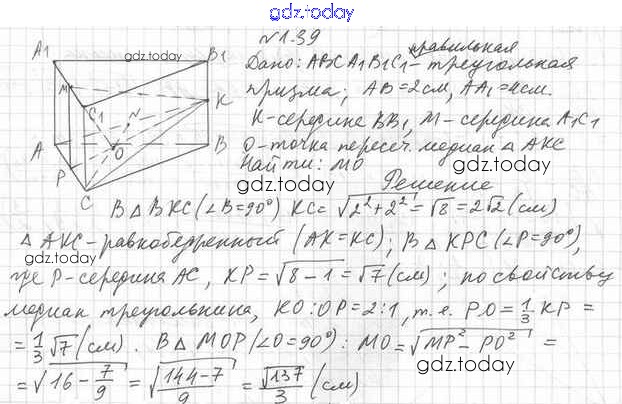 gdz.today
№1.39
правильная
Дано: ABCA1B1C1 - треугольная
призма; AB = 2см, AA1 = 4см.
K-середине BB1, M-середина A1C1
O-точка пересеч. медиан △ AKC
Найти: MO
gdz.today
Решение
A1 B1 gdz.today
M K
C1 N
A O B
P
C
В △ BKC (∠B=90°) KC = √2²+2² = √8 = 2√2 (см)
△ AKC - равнобедренный (AK=KC); В △ KPC (∠P=90°),
где P-середина AC, KP = √8-1 = √7 (см); по свойству
медиан треугольника, KO:OP=2:1, т.е. PO = 1/3 KP =
= 1/3 √7 (см). В △ MOP (∠O=90°): MO = √MP²-PO² =
= √16 - 7/9 = √144-7/9 = √137/3 (см)
gdz.today
gdz.today